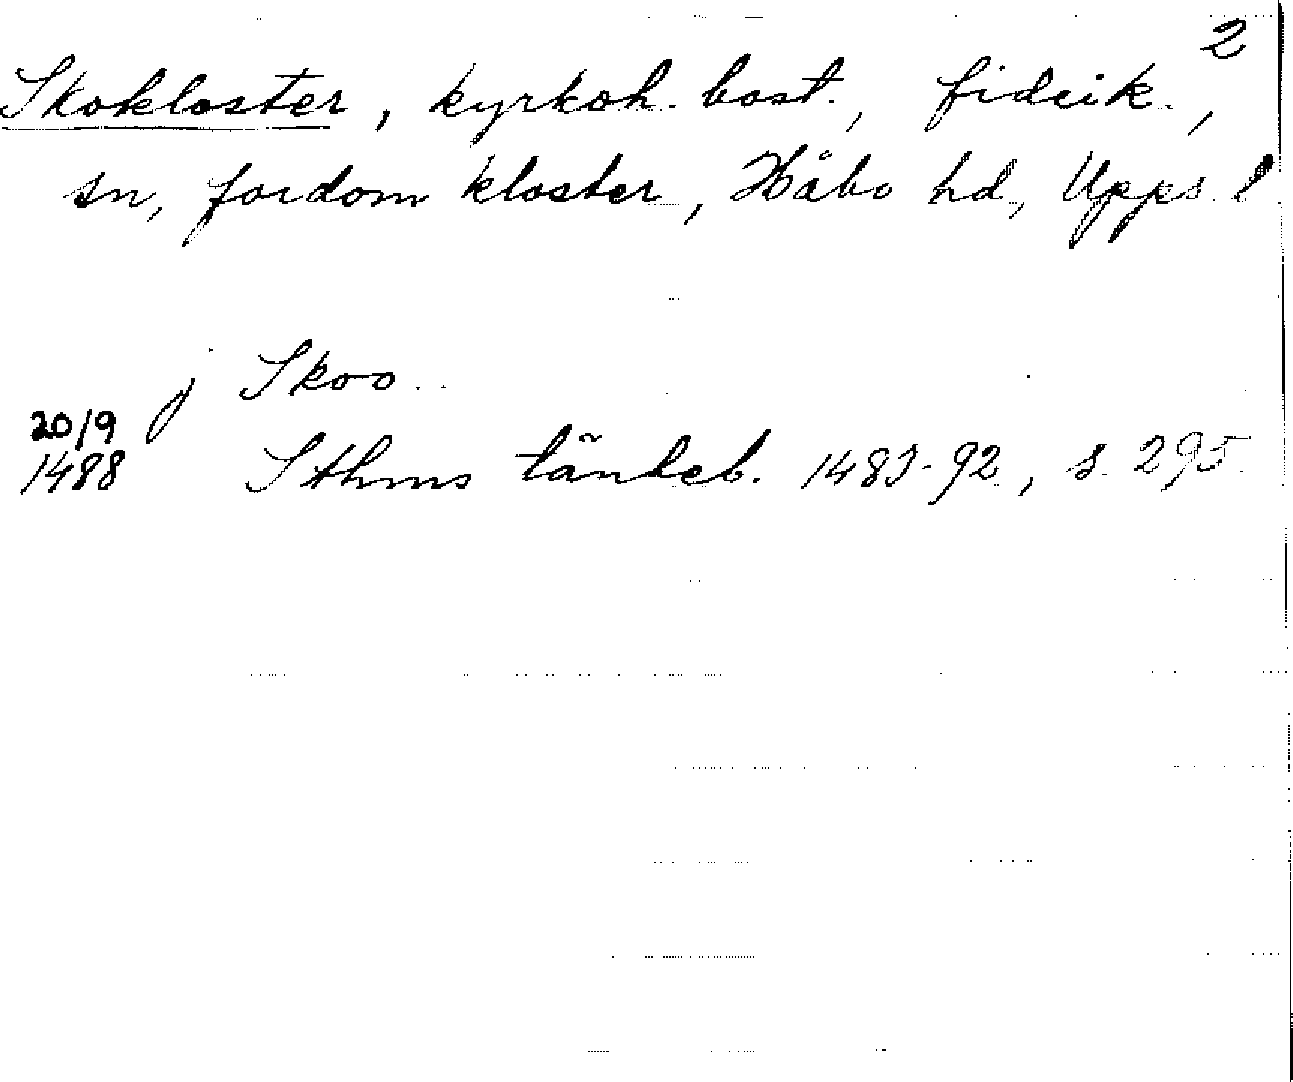 2
Skokloster, kyrkoh. bost., fideik.,
sn, fordom kloster, Håbo hd, Upps. l.
j Skoo
20/9
1488 Sthms tänkeb. 1483-92, s. 295.